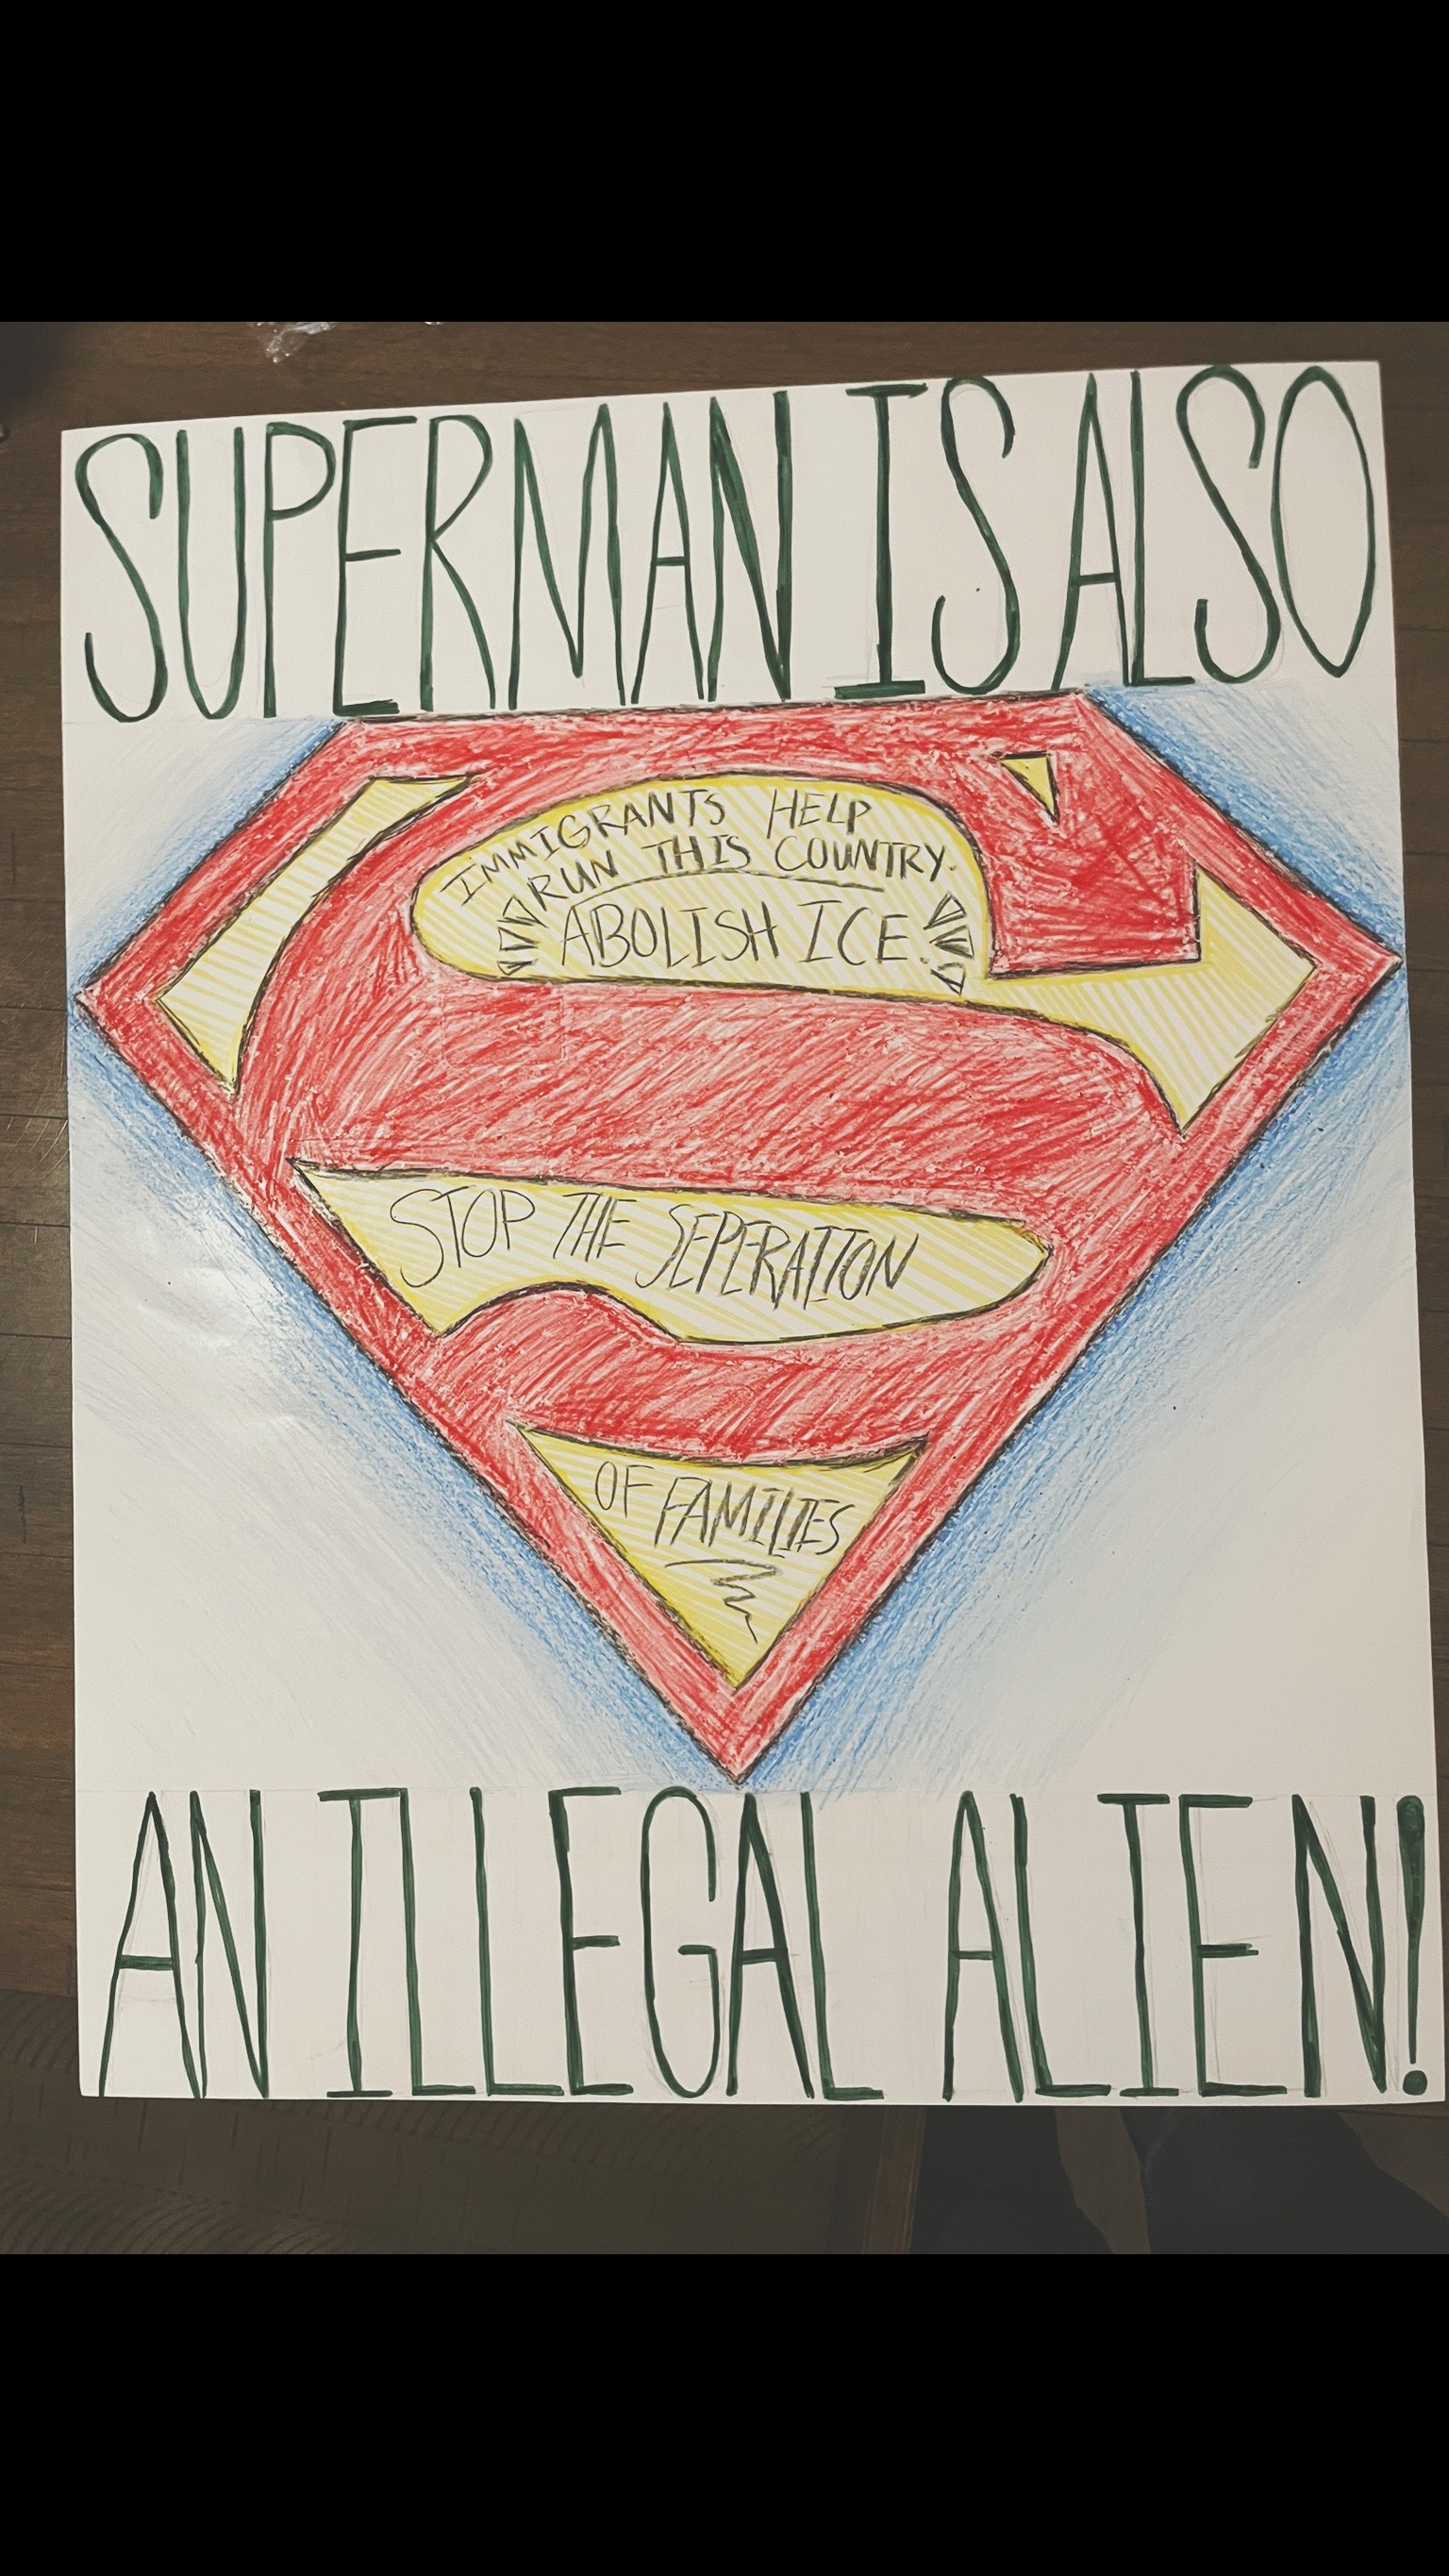 SUPERMAN IS ALSO
IMMIGRANTS HELP
RUN THIS COUNTRY.
ABOLISH ICE.
STOP THE SEPERATION
OF FAMILIES
AN ILLEGAL ALIEN!